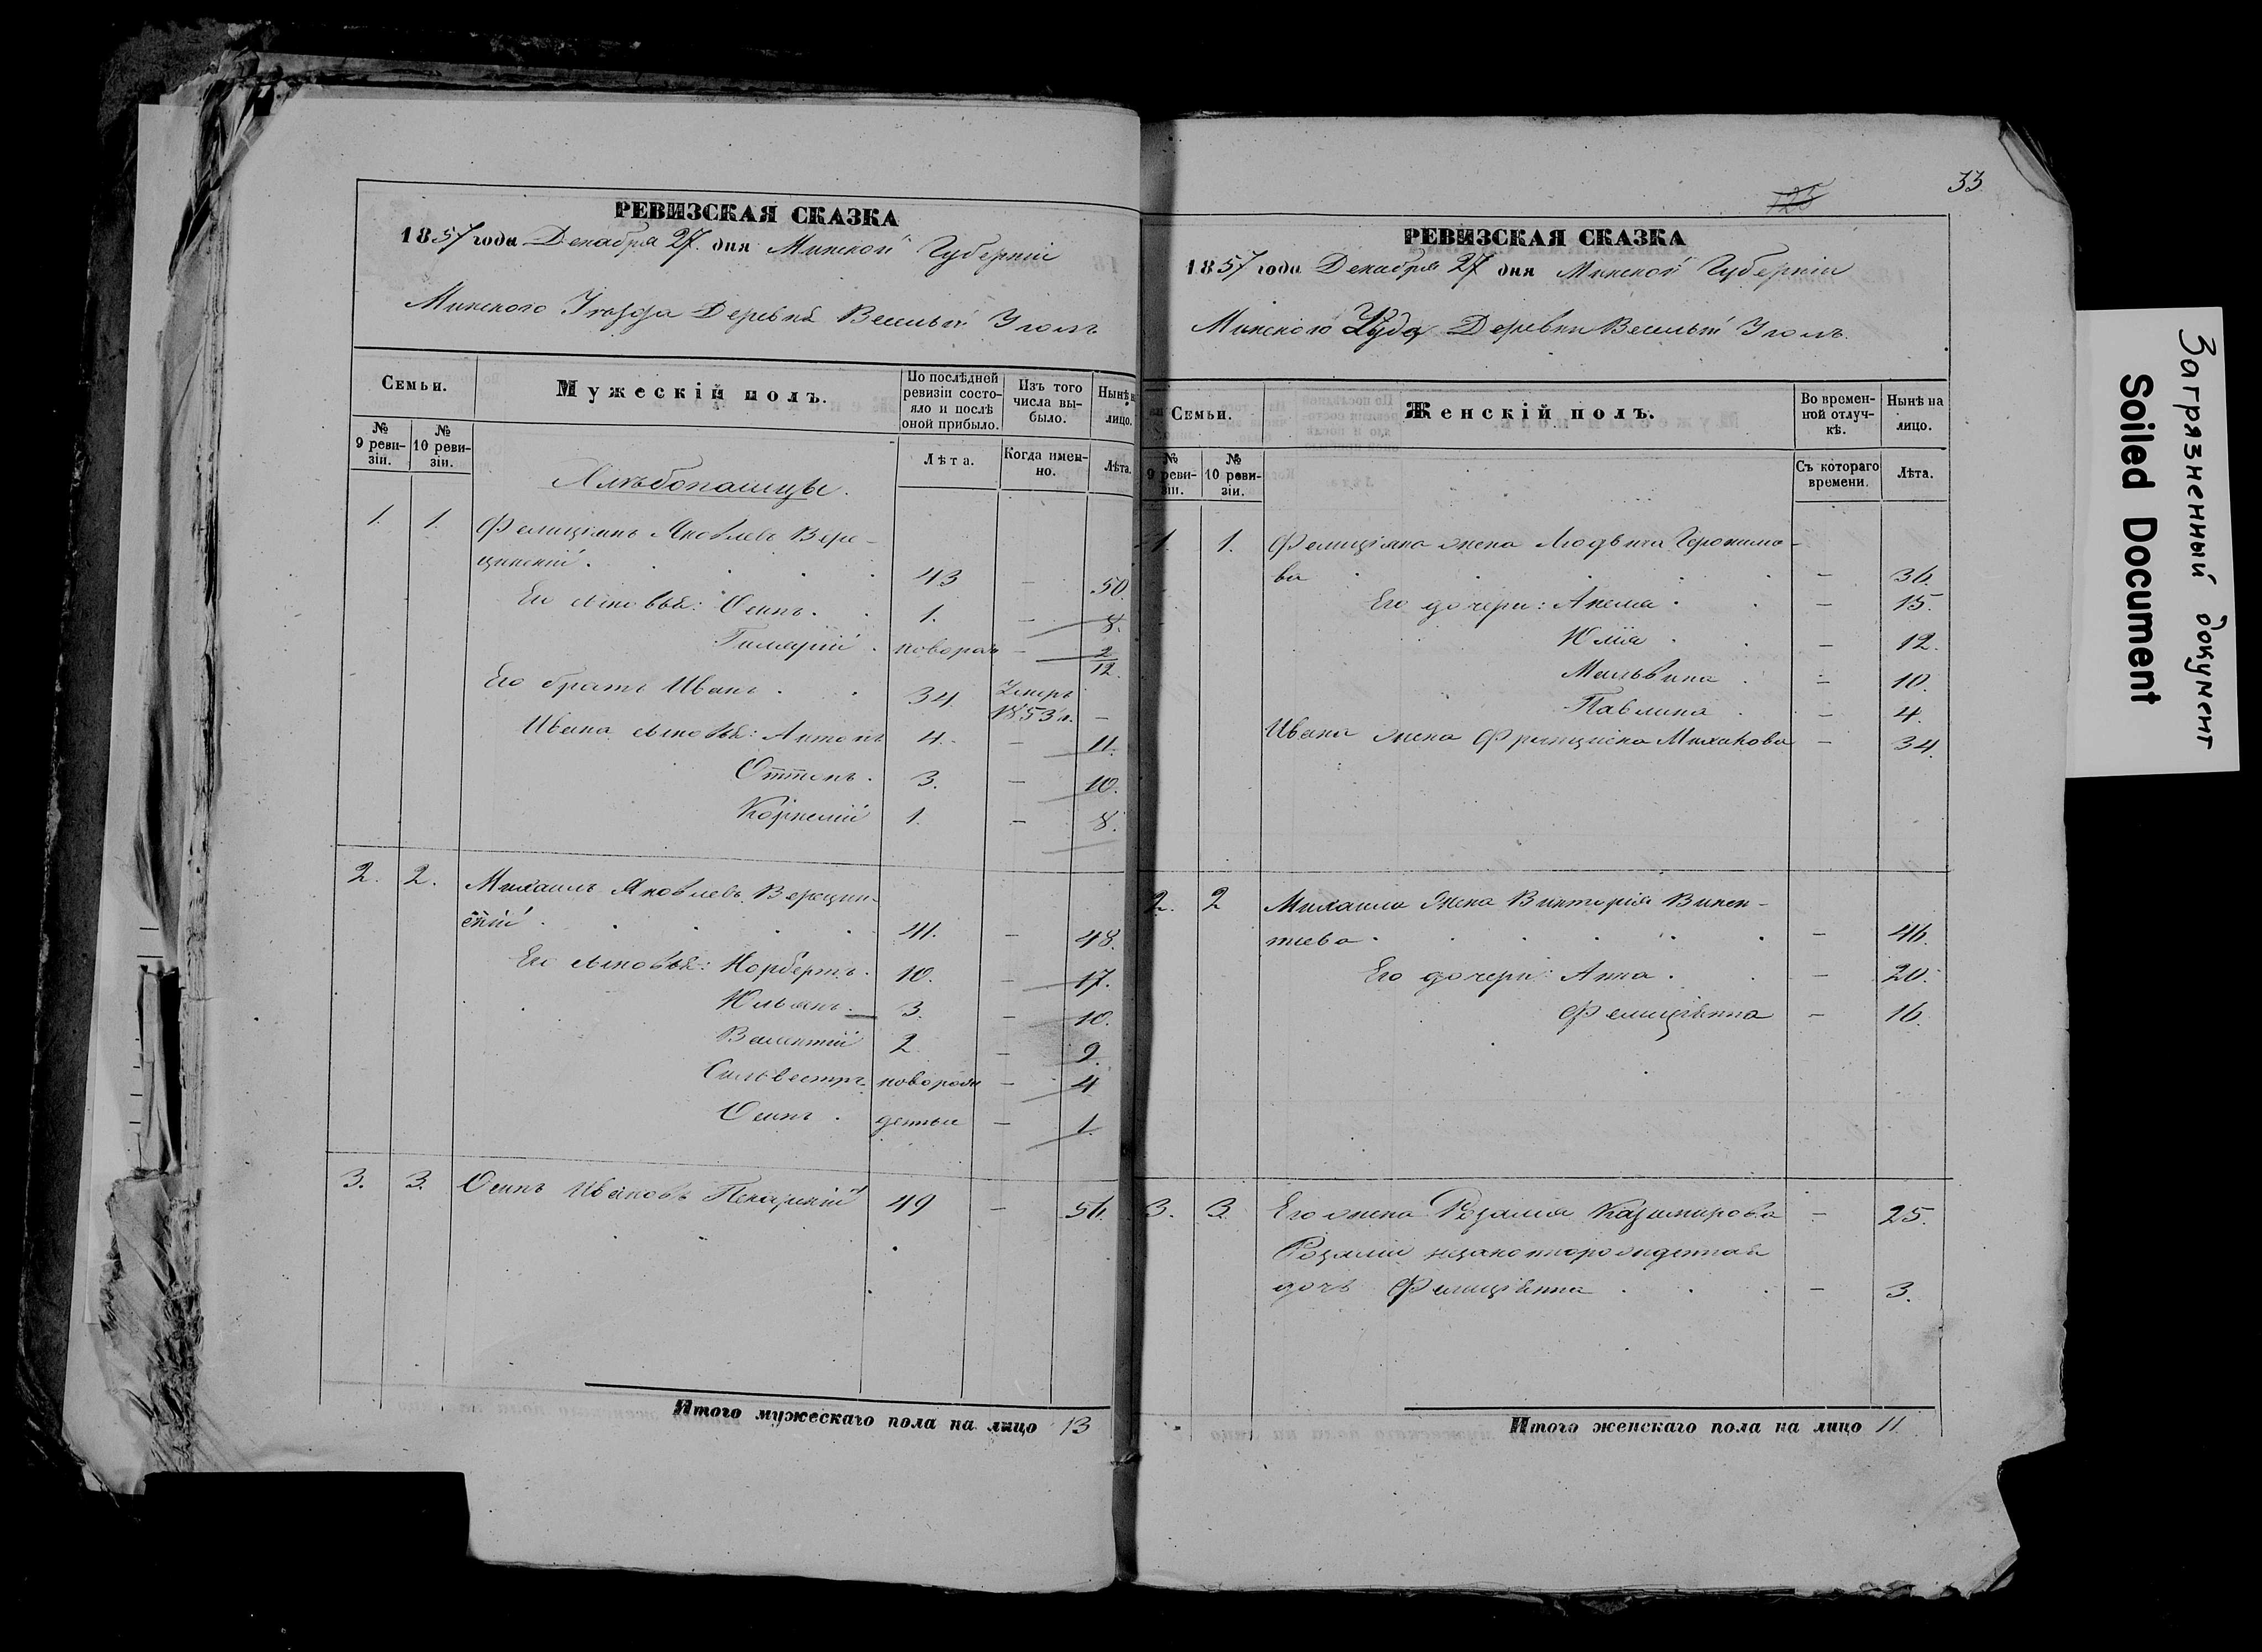 РЕВИЗСКАЯ СКАЗКА
1857 года Декабря 27 дня Минской Губерніи
Минского Уезда Деревни Веселый Уголъ
Семьи.
Мужескій полъ.
По послѣдней ревизіи состояло и послѣ оной прибыло.
Изъ того числа выбыло.
Нынѣ на лицо.
№ 9 ревизіи.
№ 10 ревизіи.
Лѣта.
Когда именно.
Лѣта.
Хлѣбопашцы.
1. 1. Фелиціянъ Яковлевъ Вере-
щинскій . 43 — 50.
Его сыновья: Осипъ . 1. — 8.
Гилярій . новорож — 2/12.
Его братъ Иванъ . 34. Умеръ 1853 г. —
Ивана сыновья: Антонъ 4. — 11.
Оттонъ . 3. — 10.
Корнелій 1. — 8.
2. 2. Михаилъ Яковлевъ Верещин-
скій . 41. — 48.
Его сыновья: Норбертъ . 10. — 17.
Юльянъ . 3. — 10.
Валентій 2 — 9.
Сильвестръ новорож — 4
Осипъ . денные — 1.
3. 3. Осипъ Ивановъ Пекарскій 49 — 56.
Итого мужескаго пола на лицо 13
125
33
РЕВИЗСКАЯ СКАЗКА
1857 года Декабря 27 дня Минской Губерніи
Минского Уезда Деревни Веселый Уголъ.
Семьи.
Женскій полъ.
Во временной отлучкѣ.
Нынѣ на лицо.
№ 9 ревизіи.
№ 10 ревизіи.
Съ котораго времени.
Лѣта.
1. 1. Фелиціяна жена Людвика Геронимо-
ва — 36.
Его дочери: Анеля . — 15.
Юлія . — 12.
Мальвина . — 10.
Павлина . — 4.
Ивана жена Францишка — 34.
2. 2 Михаила жена Викторія Викен-
тіева . — 46.
Его дочери: Анна . — 20.
Фелиціянна — 16.
3. 3. Его жена Розалія Казимирова — 25.
Розаліи незаконнорожденная
дочь Фелиціянна . — 3.
Итого женскаго пола на лицо 11.
Загрязненный документ
Soiled Document